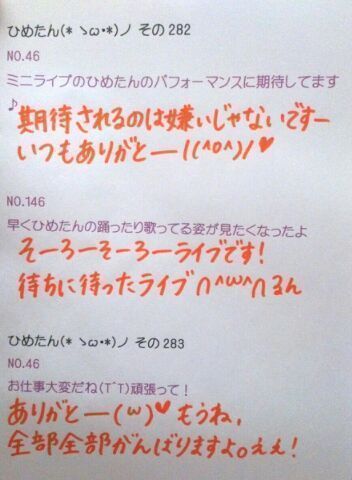 ひめたん(* ゝω・*)ノ その282
NO.46
ミニライブのひめたんのパフォーマンスに期待してます
♪
期待されるのは嫌いじゃないですー
いつもありがとーー!(^o^)/♥
NO.146
早くひめたんの踊ったり歌ってる姿が見たくなったよ
そーろーそーろーライブです!
待ちに待ったライブ∩^ω^∩るん
ひめたん(* ゝω・*)ノ その283
NO.46
お仕事大変だね(T^T)頑張って!
ありがとーー(ω)♥もうね、
全部全部がんばりますよ。ええ!